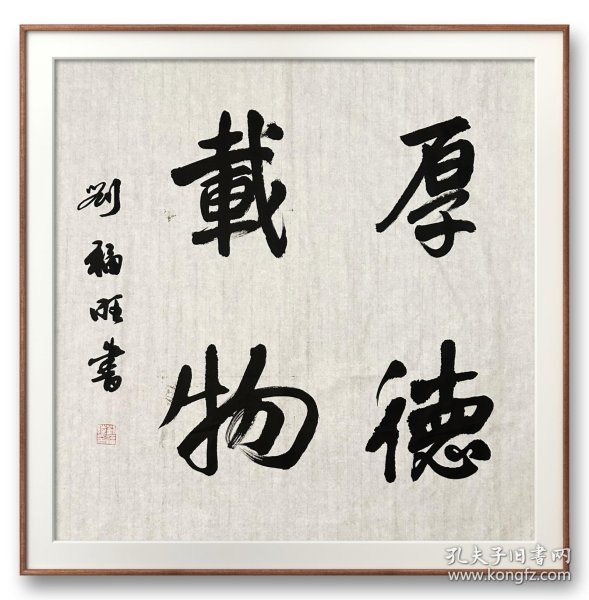 厚德
載物
劉福旺書
孔夫子旧书网
www.kongfz.com